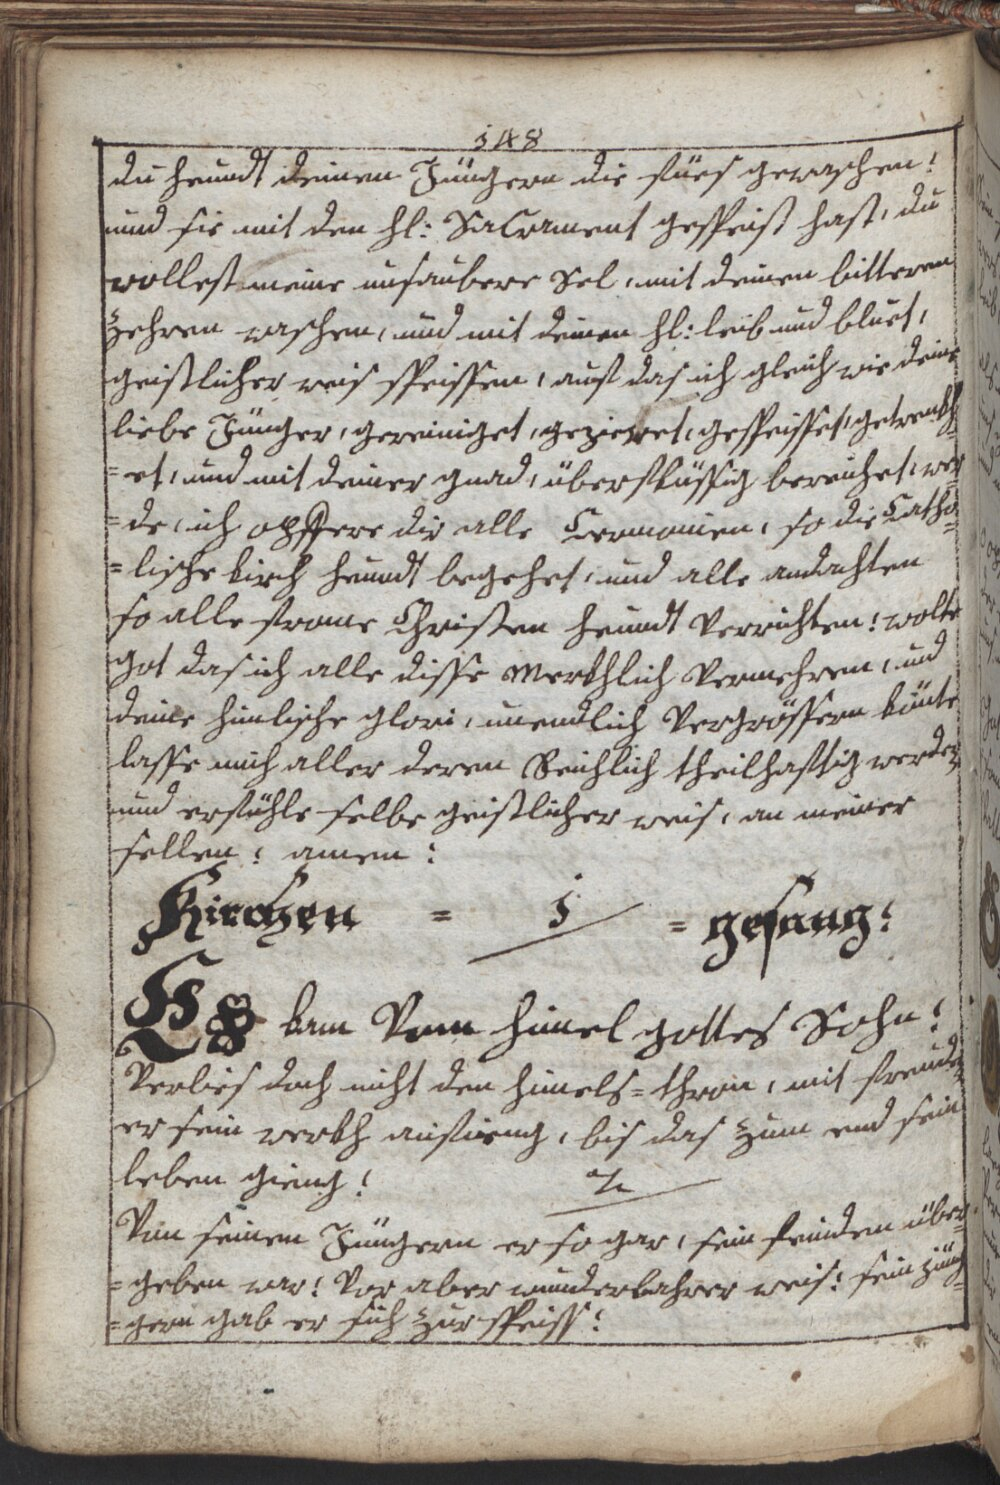 148
du heundt deinen Jüngern die fües gewaschen!
und sie mit den hl: SaCrament gespeist hast, du
wollest meine unsaubere Sel, mit deinen bitteren
Zehren waschen, und mit deinen hl: leib und bluet,
geistlicher weis speissen, aust das ich gleich wie deine
liebe Jünger, gereiniget, gezieret, gespeisset, getrenkh
= et, und mit deiner gnad, überflüssig bereichet, wer
= de, ich opffere dir alle Ceremonien, so die Catho
= lische kirch heundt begehet, und alle andachten
so alle frome Christen heundt verrichten! wolte
got das ich alle disse Merkhlich vermehren, und
deine himlische glori, unendlich vergrössern könte
lasse mich aller deren Reichlich theilhafftig werden
und erfühle selbe geistlicher weis, an meiner
sellen: amen:
Kirchen = 1 = gesang:
ES kam Vom himel gottes Sohn!
Verlies doch nicht den himels=thron, mit freuden
er sein werkh anfieng, bis das zum end sein
leben gieng!
2
Von seinen Jüngern er so gar, sein feinden über
= geben war! Vor aber wunderbahrer weis: sein Jün
= gern gab er sich zur speiss: